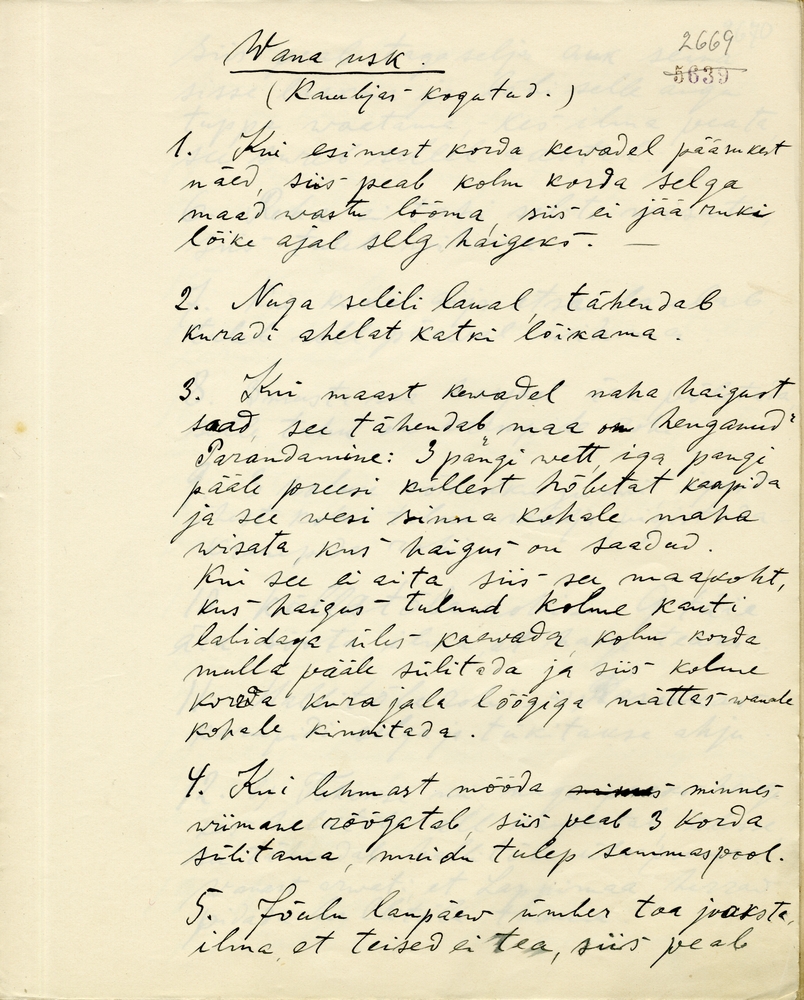 2669
5639
Wana usk.
(Kambjas kogutud.)
1. Kui esimest korda kewadel pääsukest
näed, siis peab kolm korda selga
maad wastu lööma, siis ei jää ruki
lõike ajal selg haigeks. —
2. Nuga selili laual, tähendab
kuradi ahelat katki lõikama.
3. Kui maast kewadel naha haigust
saad, see tähendab "maa on henganud"
Parandamine: 3 pangi wett, iga pangi
pääle preesi küllest hõbetat kaapida
ja see wesi sinna kohale maha
wisata, kus haigus on saadud.
Kui see ei aita, siis see maakoht,
kus haigus tulnud kolme kanti
labidaga üles kaewada, kolm korda
mulla pääle sülitada ja siis kolme
korda kura jala löögiga mättas wanale
kohale kinnitada.
4. Kui lehmast mööda minnes
wiimane röögatab, siis peab 3 korda
sülitama, muidu tulep sammaspool.
5. Jõulu laupäew ümber toa joaksta,
ilma, et teised ei tea, siis peab